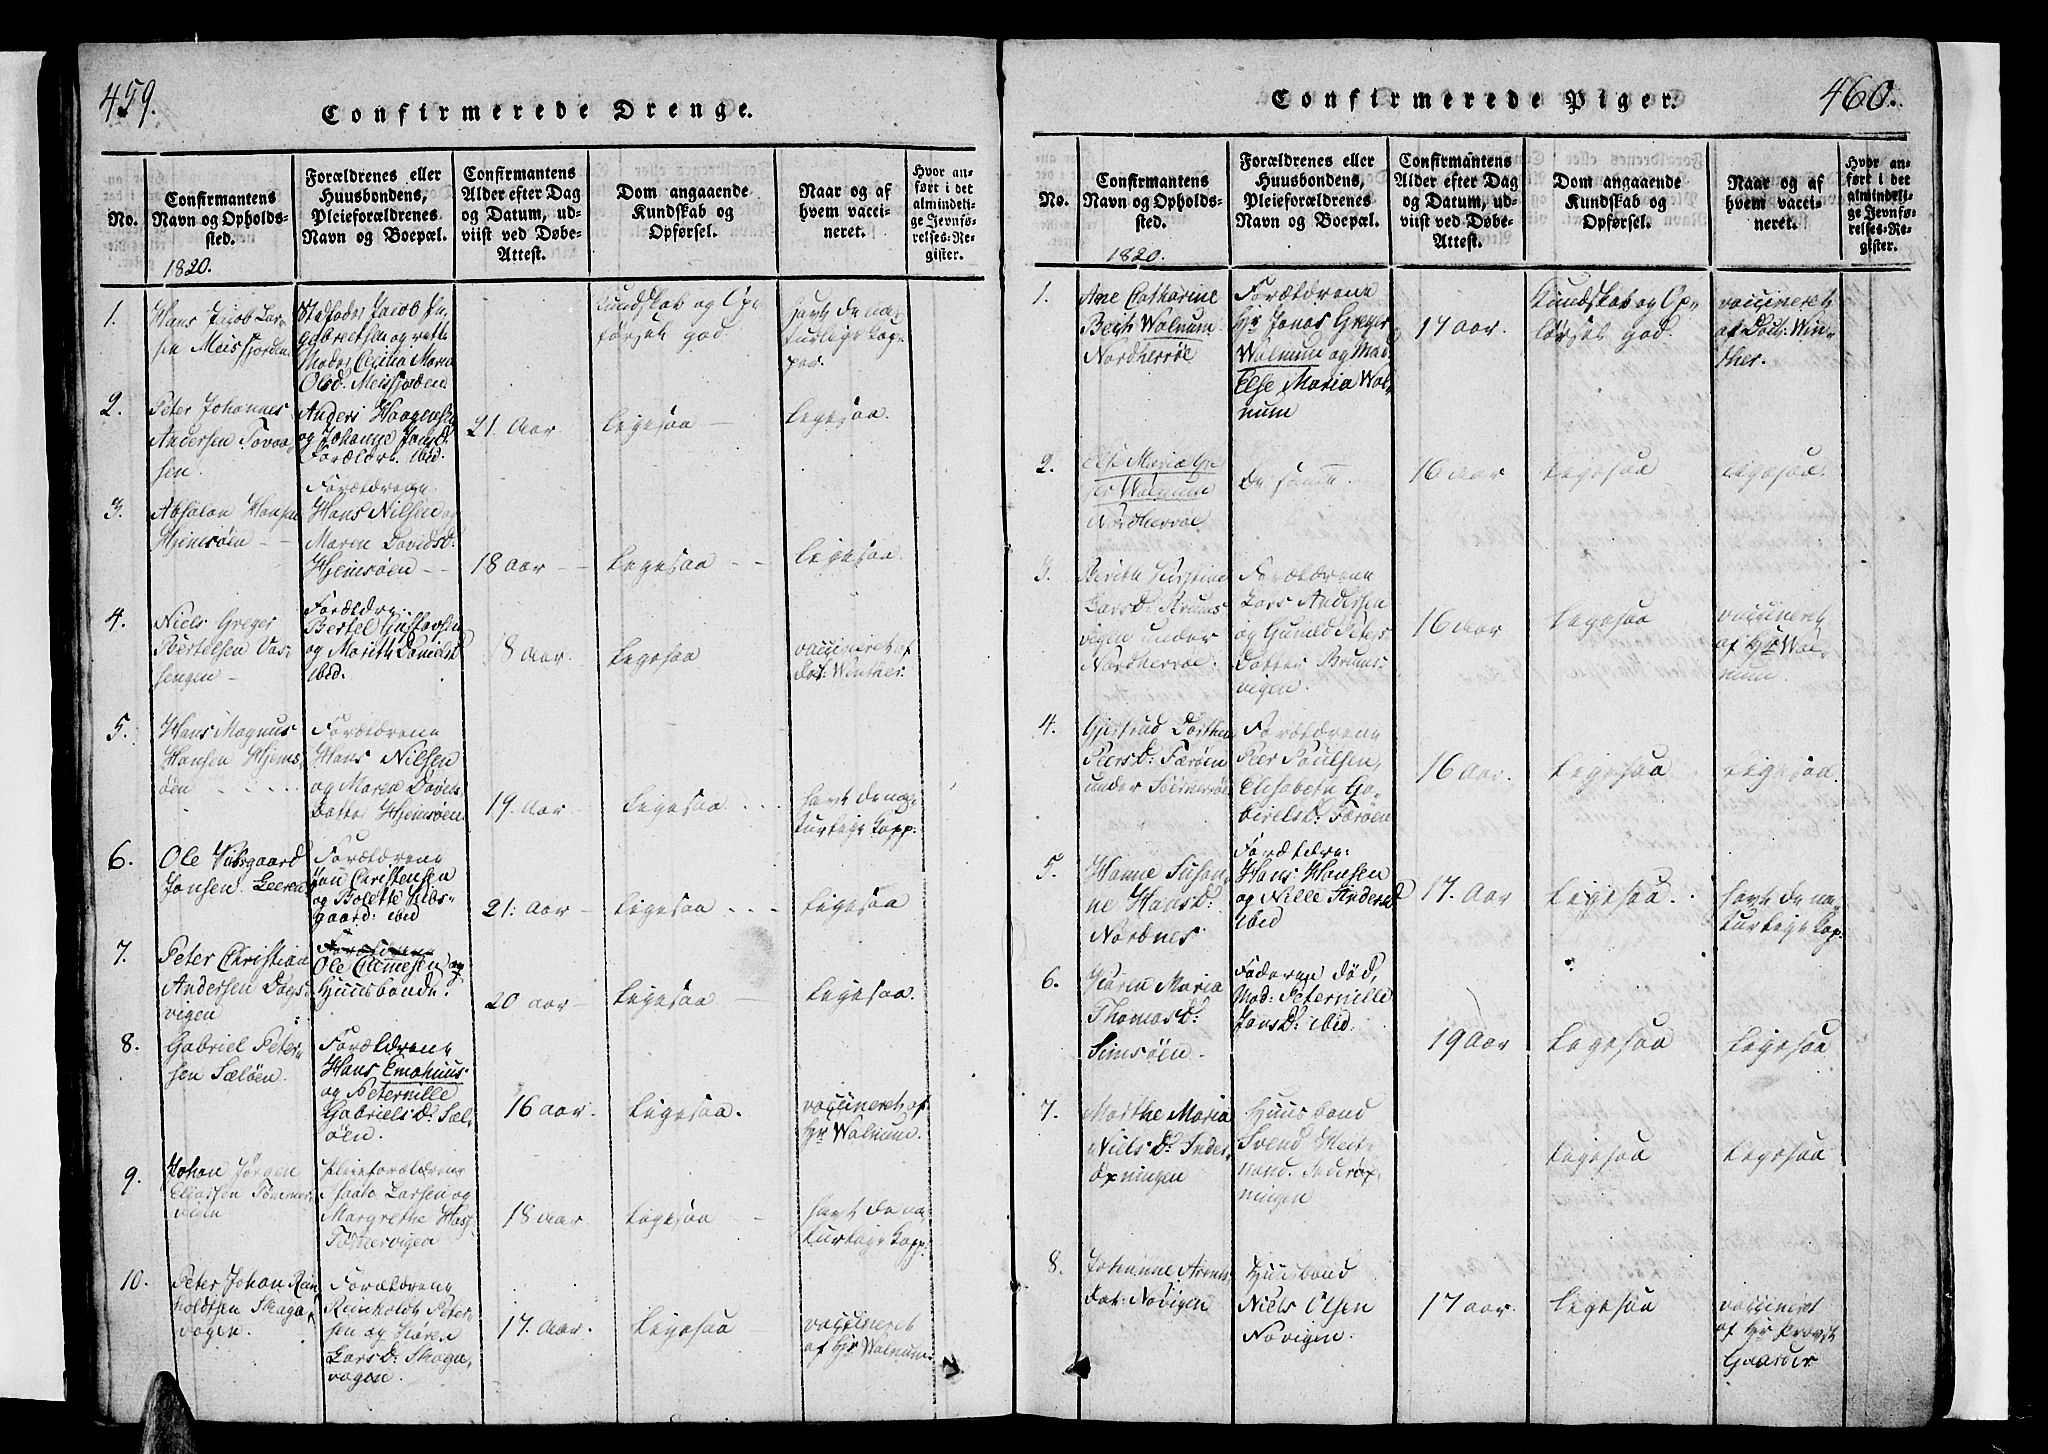 459.
Confirmerede Drenge.
No.
Confirmantens
Navn og Opholds-
sted.
1820.
Forældrenes eller
Huusbondens,
Pleieforældrenes
Navn og Boepæl.
Confirmantens
Alder efter Dag
og Datum, ud-
viist ved Døbe-
Attest.
Dom angaaende
Kundskab og
Opførsel.
Naar og af
hvem vacci-
neret.
Hvor an-
ført i det
almindeli-
ge Jevnfø-
relses-Re-
gister.
1.
Hans Jacob Lar-
sen Meisfjorden
Stedfader Jacob In-
gebretsen og rette
Moder Cecilia Maria
Olsd. Meisfjorden
Kundskab og Op-
førsel god
havt de na-
turlige Kop-
per.
2.
Peter Johannes
Andersen Tovaa-
sen.
Anders Haagensen
og Johanne Jonsd:
Forældre ibid.
21. Aar.
Ligesaa
Ligesaa.
3.
Absalon Hansen
Hjemsøen
Forældrene
Hans Nilsen og
Maren Davidsd:
Hjemsøen
18 Aar
Ligesaa
Ligesaa.
4.
Niels Greger
Bertelsen Var-
sengen
Forældre:
Bertel Gustavsen
og Marith Danielsd
ibid.
18 Aar.
Ligesaa
vaccineret af
Doc: Winther.
5.
Hans Magnus
Hansen Hjems-
øen
Forældrene
Hans Nilsen
og Maren Davids
Datter Hjemsøen.
19. Aar
Ligesaa
havt de na-
turlige Kopp:
6.
Ole Hilsgaard
Jansen Leeren
Forældrene
Jan Christensen
og Bolette Hils-
gaard: ibid
21: Aar
Ligesaa
Ligesaa
7.
Peter Christian
Andersen Dags-
vigen
Forældrene
Ole Clemesen og
Huusbonde.
20 aar
Ligesaa
Ligesaa.
8.
Gabriel Peter-
sen Sæløen.
Forældrene
Hans Emahuus
og Peternille
Gabriels D: Sæl-
øen.
16 aar.
Ligesaa.
vaccineret af
Hr Walnum.
9.
Johan Jørgen
Eliassen Tømmer-
vigen
Pleieforældrene
Larsen og
Margrethe Hans
Tømervigen
18 aar
Ligesaa
havt de na-
turlige Kopp:
10.
Peter Johan Rein-
holdtsen Skaga-
vogen.
Forældrene
Reinholdt Peter-
sen og Karen
Larsd: Skaga-
vogen.
17. Aar.
Ligesaa
vaccineret
af Hr Walnum.
460.
Confirmerede Piger.
No.
Confirmantens
Navn og Opholds-
sted.
1820.
Forældrenes eller
Huusbondens,
Pleieforældrenes
Navn og Boepæl.
Confirmantens
Alder efter Dag
og Datum, ud-
viist ved Døbe-
Attest.
Dom angaaende
Kundskab og
Opførsel.
Naar og af
hvem vacci-
neret.
Hvor an-
ført i det
almindeli-
ge Jevnfø-
relses-Re-
gister.
1.
Ane Catharine
Bech Walnum.
Nordherrøe
Forældrene
Hr Jonas Greger
Walnum og Mad.
Else Maria Wal-
num
17 Aar.
Kundskab og Op-
førsel god.
vaccineret
af Doct: Win-
ther.
2.
Else Maria
Walnum
Nordherrøe
de samme.
16 Aar
Ligesaa
Ligesaa.
3.
Berith Kirstine
Larsd: Bruns-
vigen under
Nordherrøe.
Forældrene
Lars Andersen
og Gunild Peters
Datter Bruns-
vigen.
16 Aar
Ligesaa
vaccineret
af Hr Wal-
num.
4.
Gjertrud Dorthea
Peersd: Færøen
under Søerherrøe
Forældrene
Peer Paulsen,
Elisabeth Ga-
brielsd: Færøen
16 Aar.
Ligesaa
Ligesaa.
5.
Hanne Susan-
ne Hansd:
Nordnes
Forældre:
Hans Hansen
og Nille Andersd
ibid
17. Aar
Ligesaa.
havt de na-
turlige Kop.
6.
Karen Maria
Thomasd:
Simsøen.
Faderen død,
Mod: Peternille
Jonsd: ibid.
19 Aar
Ligesaa
Ligesaa
7.
Marthe Maria
Niels D: Inder-
øxningen
Huusbond
Svend
Inderøx-
ningen
Ligesaa
Ligesaa
8.
Johanne Arens-
dat: Novigen
Huusbond
Niels Olsen
Novigen.
17 aar.
Ligesaa
vaccineret
af Hr Provst
Gaarder